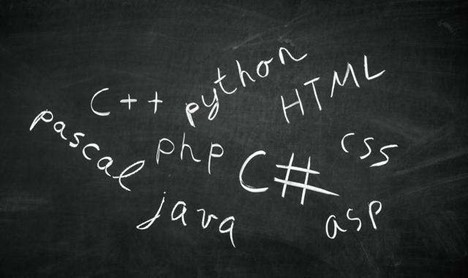 python
HTML
C++
pascal
php
C#
css
java
asp